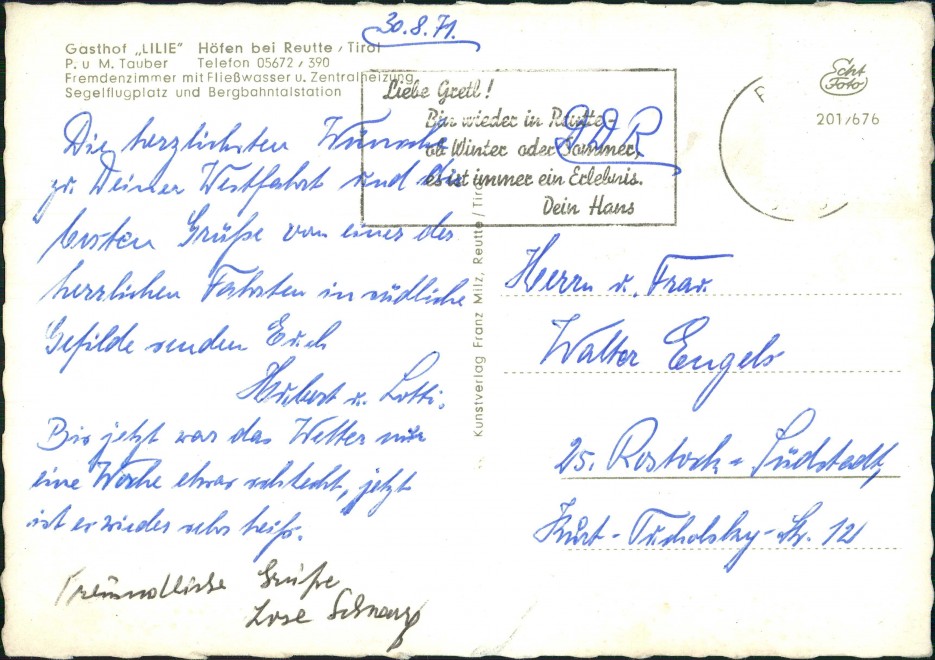 30.8.71.
Gasthof „LILIE" Höfen bei Reutte / Tirol
P. u M. Tauber Telefon 05672 / 390
Fremdenzimmer mit Fließwasser u. Zentralheizung
Segelflugplatz und Bergbahntalstation
Liebe Gretl!
Bin wieder in Reutte-
ob Winter oder Sommer,
es ist immer ein Erlebnis.
Dein Hans
Echt
Foto
201/676
DDR
Die herzlichsten Wünsche
zu Deiner Westfahrt und die
besten Grüße von einer der
herrlichen Fahrten in südliche
Gefilde senden Euch
Hubert u. Lotti.
Bis jetzt war das Wetter nur
eine Woche etwas schlecht, jetzt
ist es wieder sehr heiß.
Freundliche Grüße
Kunstverlag Franz Milz, Reutte / Tirol
Herrn u. Frau
Walter Engels
25. Rostock - Südstadt,
Kurt-Tucholsky-Str. 121